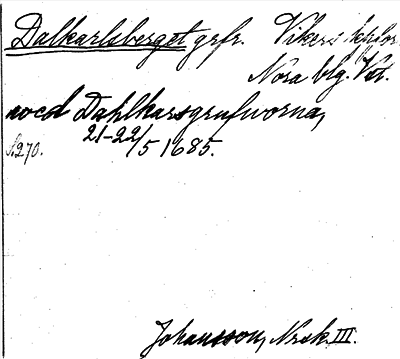 Dalkarlsberget grfr. Vikers kplor
Nora blg. Vstl.
wed Dahlkarsgrufworna,
21-22/5 1685.
S. 270.
Johansson, Norsk. III.